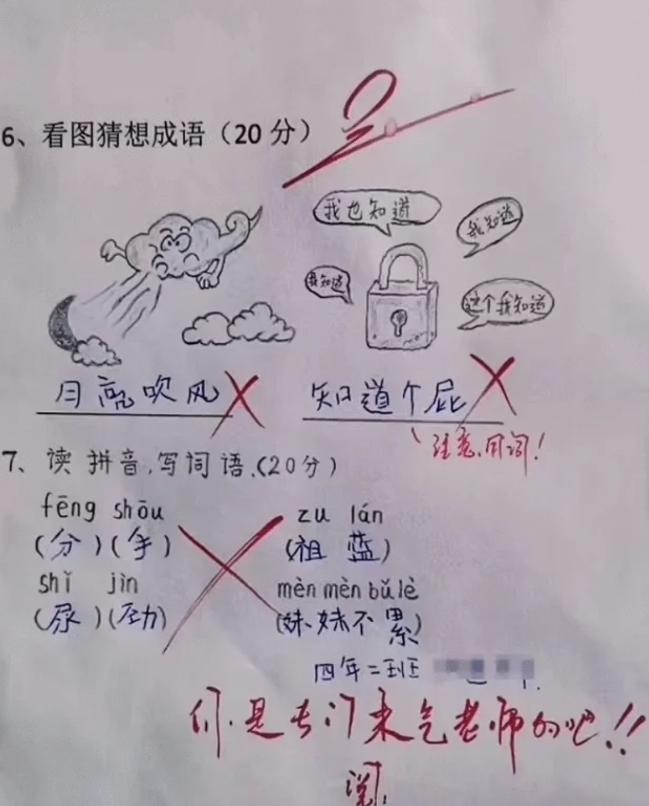 6、看图猜想成语（20分）
我也知道
我知道
我知道
这个我知道
月亮吹风
知道个屁
注意用词！
7、读拼音，写词语.（20分）
fēng shōu
zu lán
（分）（手）
（祖 蓝）
shǐ jìn
mèn mèn bǔ lè
（尿）（劲）
（妹妹不累）
四年二班
你是专门来气老师的吧!!